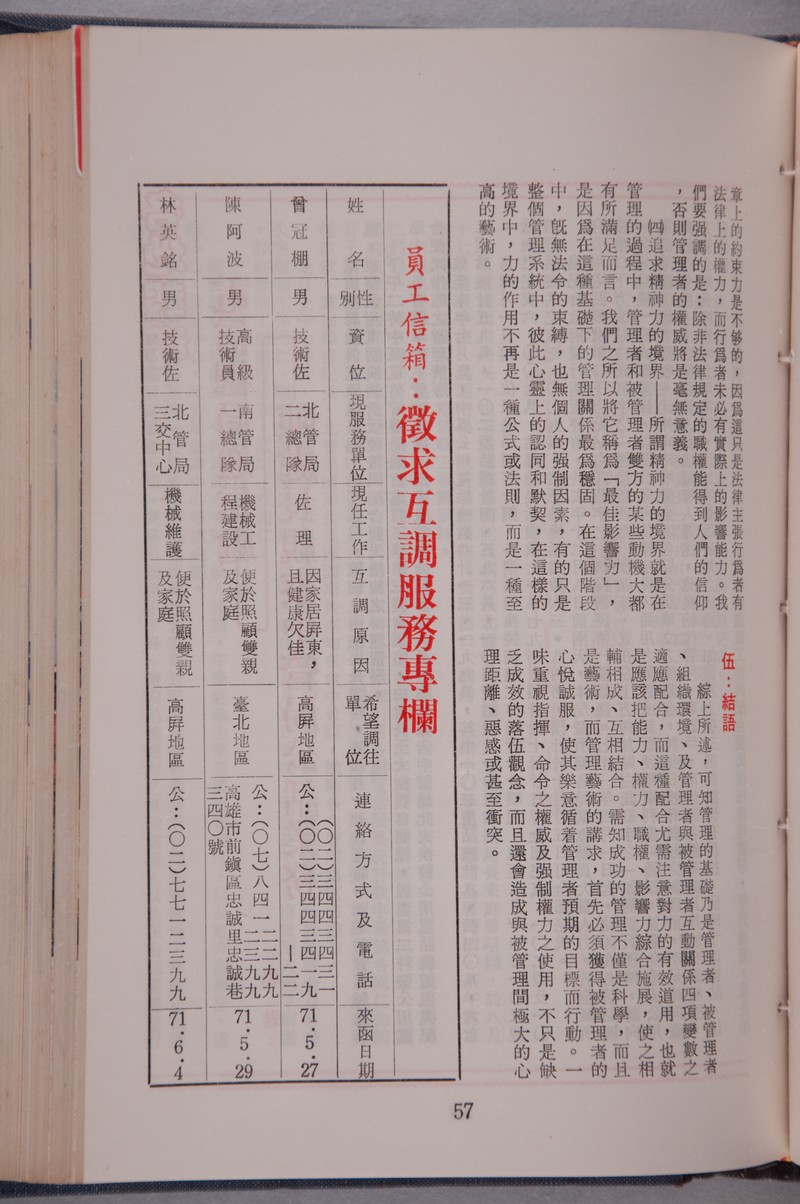 章上的約束力是不够的，因爲這只是法律主張行爲者有
法律上的權力，而行爲者未必有實際上的影響能力。我
們要强調的是：除非法律規定的職權能得到人們的信仰
，否則管理者的權威將是毫無意義。
㈣追求精神力的境界──所謂精神力的境界就是在
管理的過程中，管理者和被管理者雙方的某些動機大都
有所滿足而言。我們之所以將它稱爲「最佳影響力」，
是因爲在這種基礎下的管理關係最爲穩固。在這個階段
中，旣無法令的束縛，也無個人的强制因素，有的只是
整個管理系統中，彼此心靈上的認同和默契，在這樣的
境界中，力的作用不再是一種公式或法則，而是一種至
高的藝術。
伍：結語
綜上所述，可知管理的基礎乃是管理者、被管理者
、組織環境、及管理者與被管理者互動關係四項變數之
適應配合，而這種配合尤需注意對力的有效道用，也就
是應該把能力、權力、職權、影響力綜合施展，使之相
輔相成、互相結合。需知成功的管理不僅是科學，而且
是藝術，而管理藝術的講求，首先必須獲得被管理者的
心悅誠服，使其樂意循着管理者預期的目標而行動。一
味重視指揮、命令之權威及强制權力之使用，不只是缺
乏成效的落伍觀念，而且還會造成與被管理間極大的心
理距離、惡感或甚至衝突。
員工信箱：徵求互調服務專欄
姓名
性別
資位
現服務單位
現任工作
互調原因
希望調往
單位
連絡方式及電話
來函日期
曾冠棚
男
技術佐
北管局
二總隊
佐理
因家居屏東，
且健康欠佳
高屏地區
公：(〇二)三四四三四三一
(〇二)三四四三四一九
│二二
71．5．27
陳阿波
男
高級
技術員
南管局
一總隊
機械工
程建設
便於照顧雙親
及家庭
臺北地區
公：(〇七)八四一二二九九
高雄市前鎮區忠誠里忠誠巷
三四〇號
71．5．29
林英銘
男
技術佐
北管局
三交中心
機械維護
便於照顧雙親
及家庭
高屏地區
公：(〇二)七七一二三九九
71．6．4
57